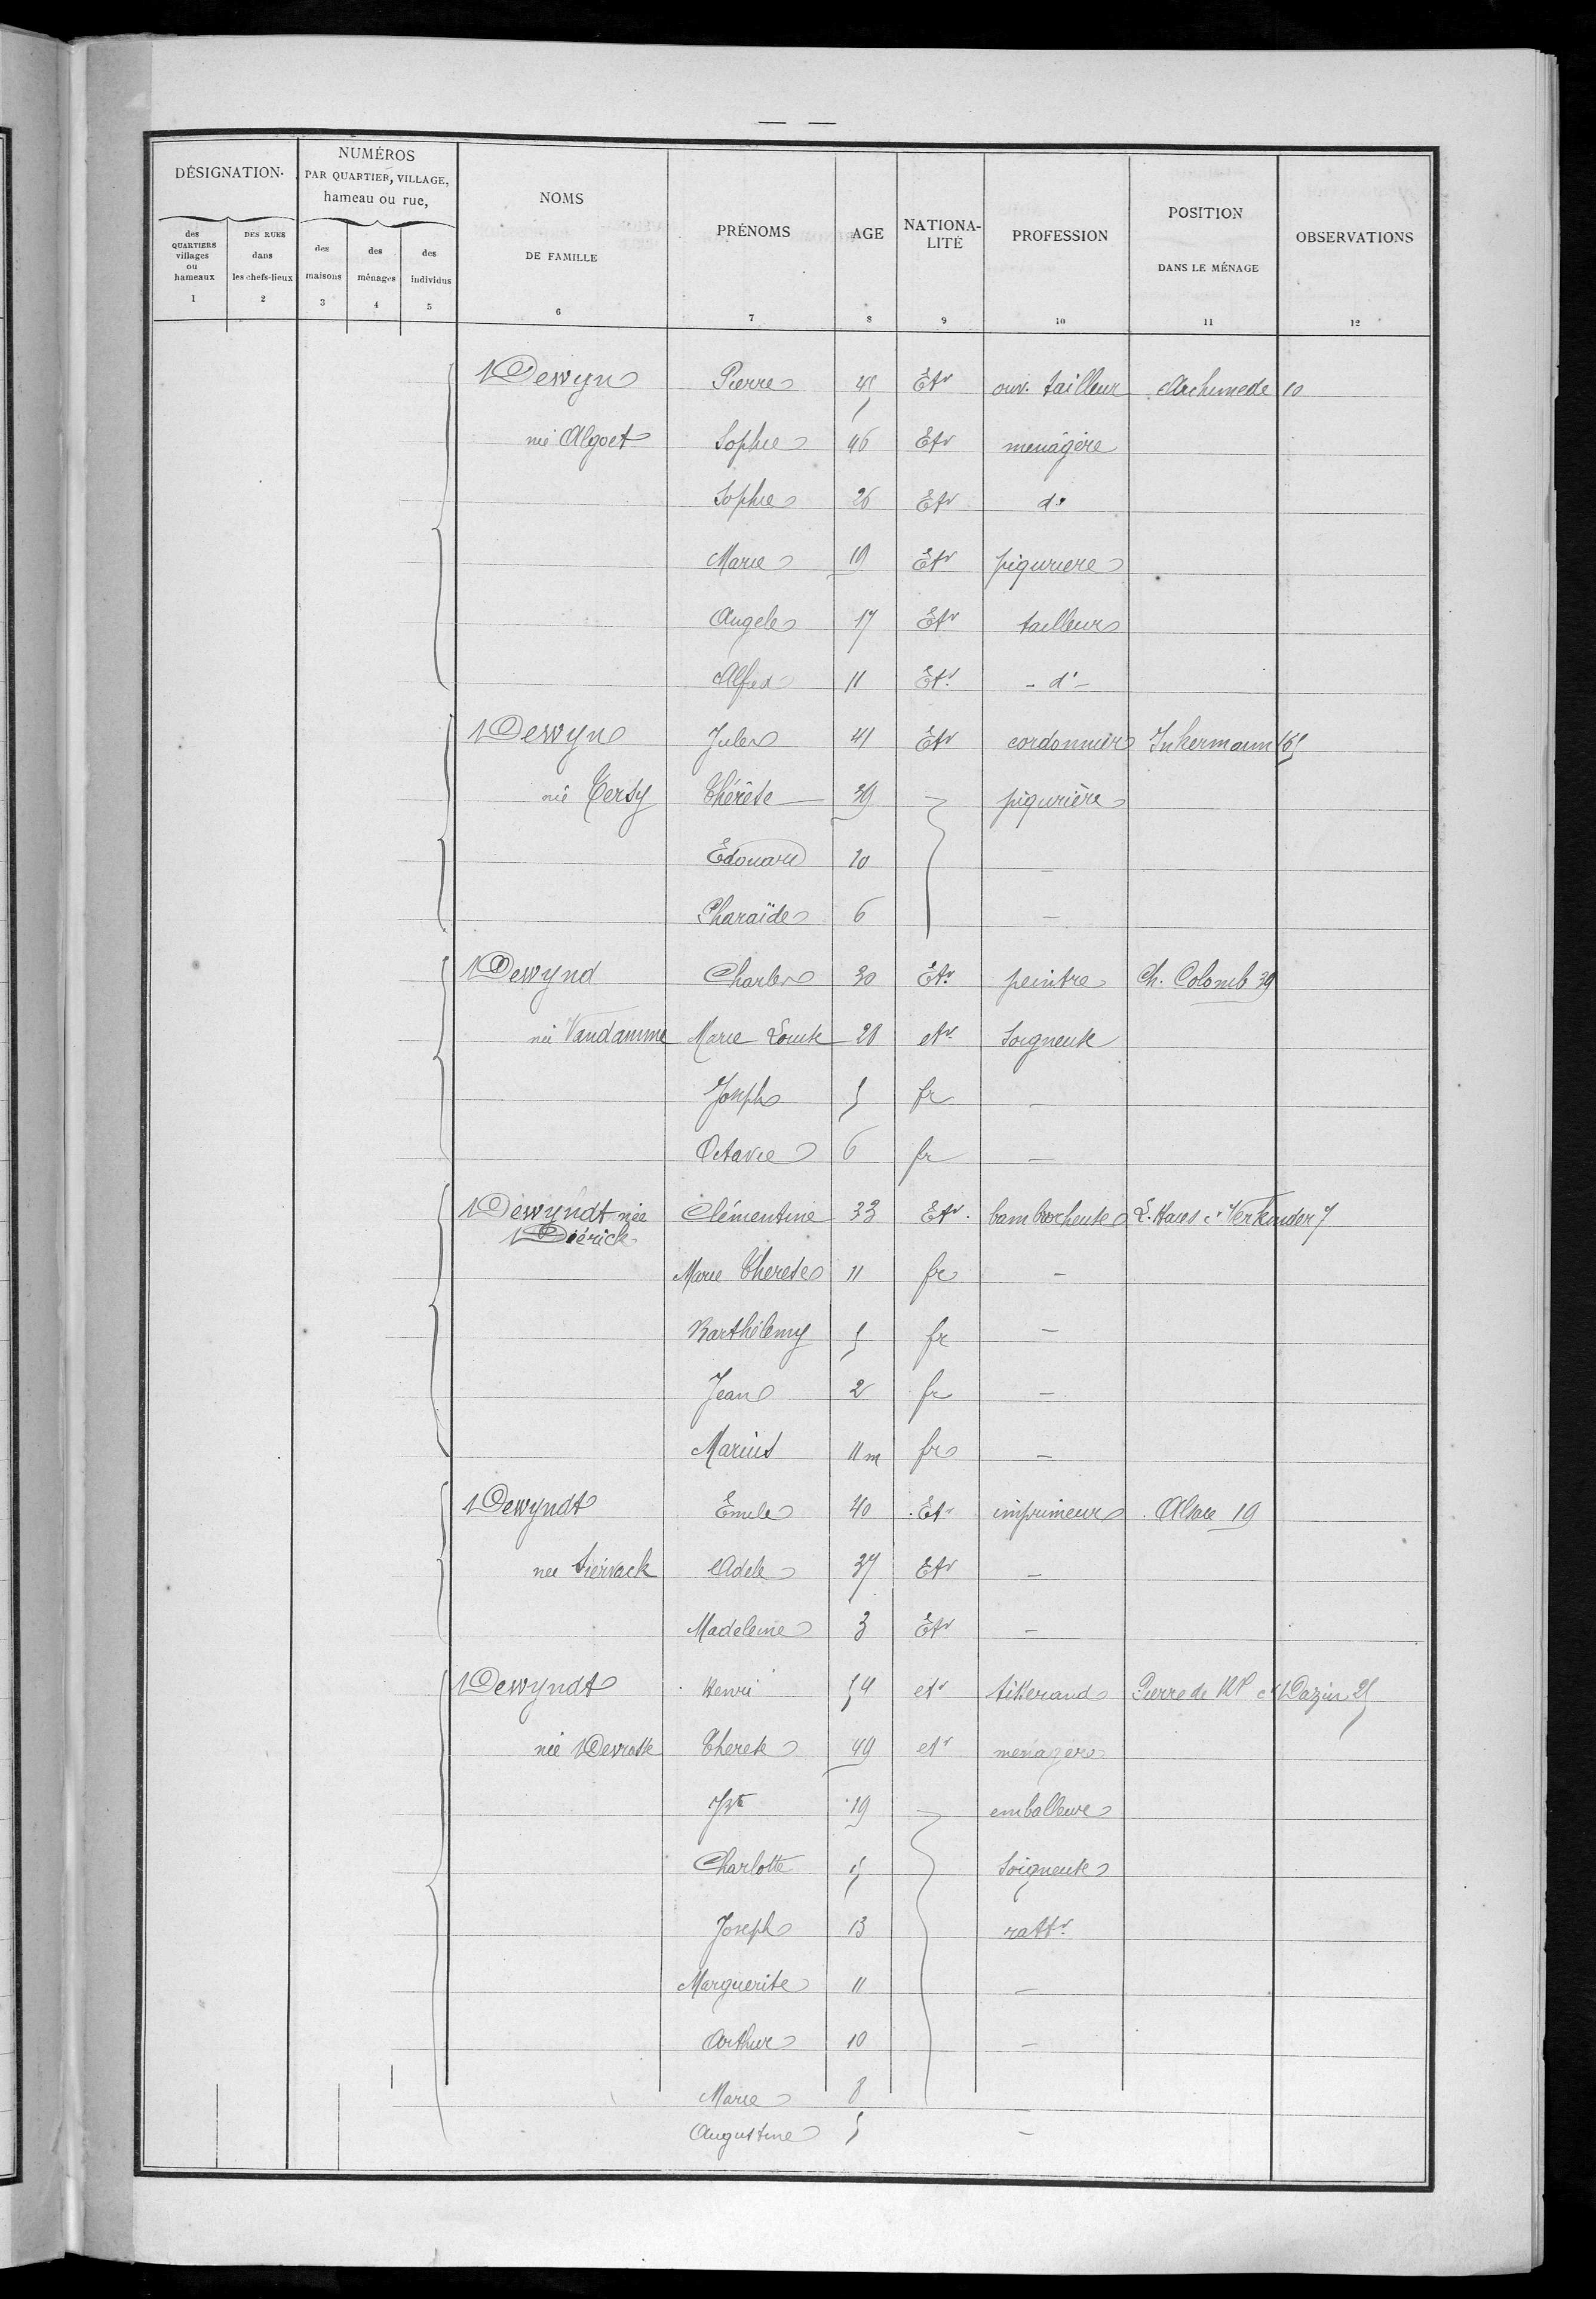 — —
DÉSIGNATION
NUMÉROS
PAR QUARTIER, VILLAGE,
hameau ou rue,
NOMS
DE FAMILLE
PRÉNOMS
AGE
NATIONA-
LITÉ
PROFESSION
POSITION
DANS LE MÉNAGE
OBSERVATIONS
des
QUARTIERS
villages
ou
hameaux
DES RUES
dans
les chefs-lieux
des
maisons
des
ménages
des
individus
1 2 3 4 5 6 7 8 9 10 11 12
Dewyn Pierre 45 Etr ouv. tailleur Archimede 10
née Algoet Sophie 46 Etr menagère
Sophie 26 Etr do
Marie 19 Etr piqurière
Angele 17 Etr tailleur
Alfred 11 Etr - do -
Dewyn Jules 41 Etr cordonnier Inkermann 65
née Cersy Thérèse 39 piqurière
Edouard 10 —
Pharaïde 6 —
Dewynd Charles 30 Etr peintre Ch. Colomb 39
née Vandamme Marie Louise 28 etr soigneuse
Joseph 5 fr —
Octavie 6 fr —
Dewyndt née Clémentine 33 Etr. bambrocheuse L. Haes c Verkinder 7
Diérick
Marie Therese 11 fr —
Barthélemy 5 fr —
Jean 2 fr —
Marius 11 m fr —
Dewyndt Emile 40 Etr imprimeur Alsace 19
nee Adele 37 Etr —
Madeleine 3 Etr —
Dewyndt Henri 54 etr tisserand Pierre de c Dazin 25
née Therese 49 etr menagere
Jh 19 emballeur
Charlotte 15 soigneuse
Joseph 13 rattr
Marguerite 11 —
Arthur 10 —
Marie 8 —
Augustine 5 —